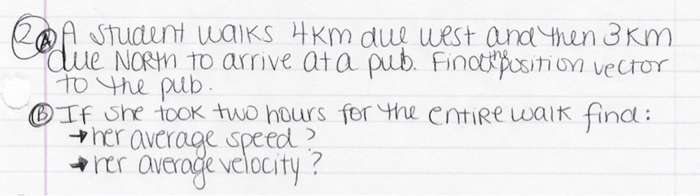 2 A A student walks 4km due west and then 3km
due NORth to arrive at a pub. Find the position vector
to the pub.
B If she took two hours for the entire walk find:
→ her average speed?
→ her average velocity?